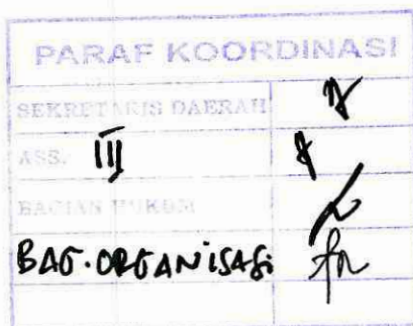 PARAF KOORDINASI
SEKRETARIS DAERAH
ASS. III
BAGIAN HUKUM
BAG. ORGANISASI